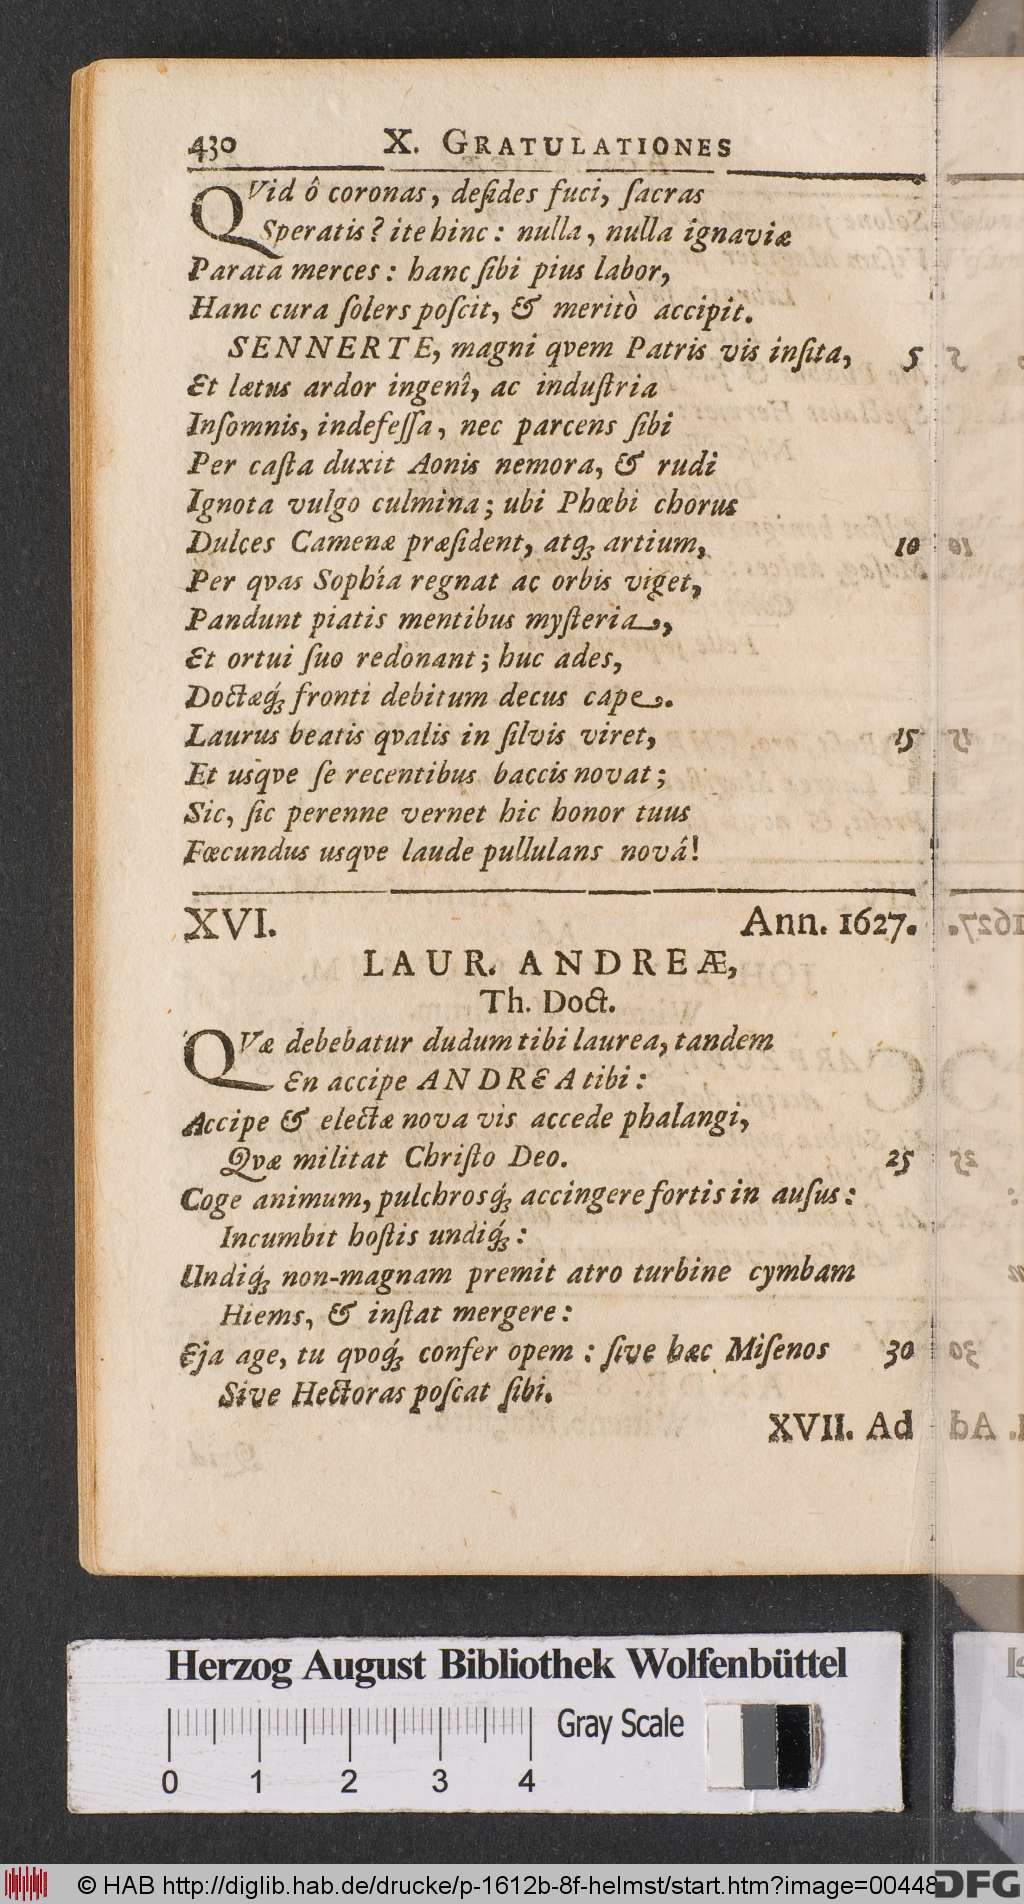 430 X. GRATULATIONES
QVid ô coronas, deſides fuci, ſacras
Speratis? ite hinc: nulla, nulla ignaviæ
Parata merces: hanc ſibi pius labor,
Hanc cura ſolers poſcit, & meritò accipit.
SENNERTE, magni qvem Patris vis inſita, 5
Et lætus ardor ingenî, ac induſtria
Inſomnis, indefeſſa, nec parcens ſibi
Per caſta duxit Aonis nemora, & rudi
Ignota vulgo culmina; ubi Phœbi chorus
Dulces Camenæ præſident, atq́ꝫ artium, 10
Per qvas Sophía regnat ac orbis viget,
Pandunt piatis mentibus myſteria,
Et ortui ſuo redonant; huc ades,
Doctæq́ꝫ fronti debitum decus cape.
Laurus beatis qvalis in ſilvis viret, 15
Et usqve ſe recentibus baccis novat;
Sic, ſic perenne vernet hic honor tuus
Fœcundus usqve laude pullulans novâ!
XVI. Ann. 1627.
LAUR. ANDREÆ,
Th. Doct.
QVæ debebatur dudum tibi laurea, tandem
En accipe ANDREA tibi:
Accipe & electæ nova vis accede phalangi,
Qvæ militat Chriſto Deo. 25
Coge animum, pulchrosq́ꝫ accingere fortis in auſus:
Incumbit hoſtis undiq́ꝫ:
Undiq́ꝫ non-magnam premit atro turbine cymbam
Hiems, & inſtat mergere:
Eja age, tu qvoq́ꝫ confer opem: ſive hæc Miſenos 30
Sive Hectoras poſcat ſibi.
XVII. Ad
Herzog August Bibliothek Wolfenbüttel
Gray Scale
0 1 2 3 4
© HAB http://diglib.hab.de/drucke/p-1612b-8f-helmst/start.htm?image=00448
DFG